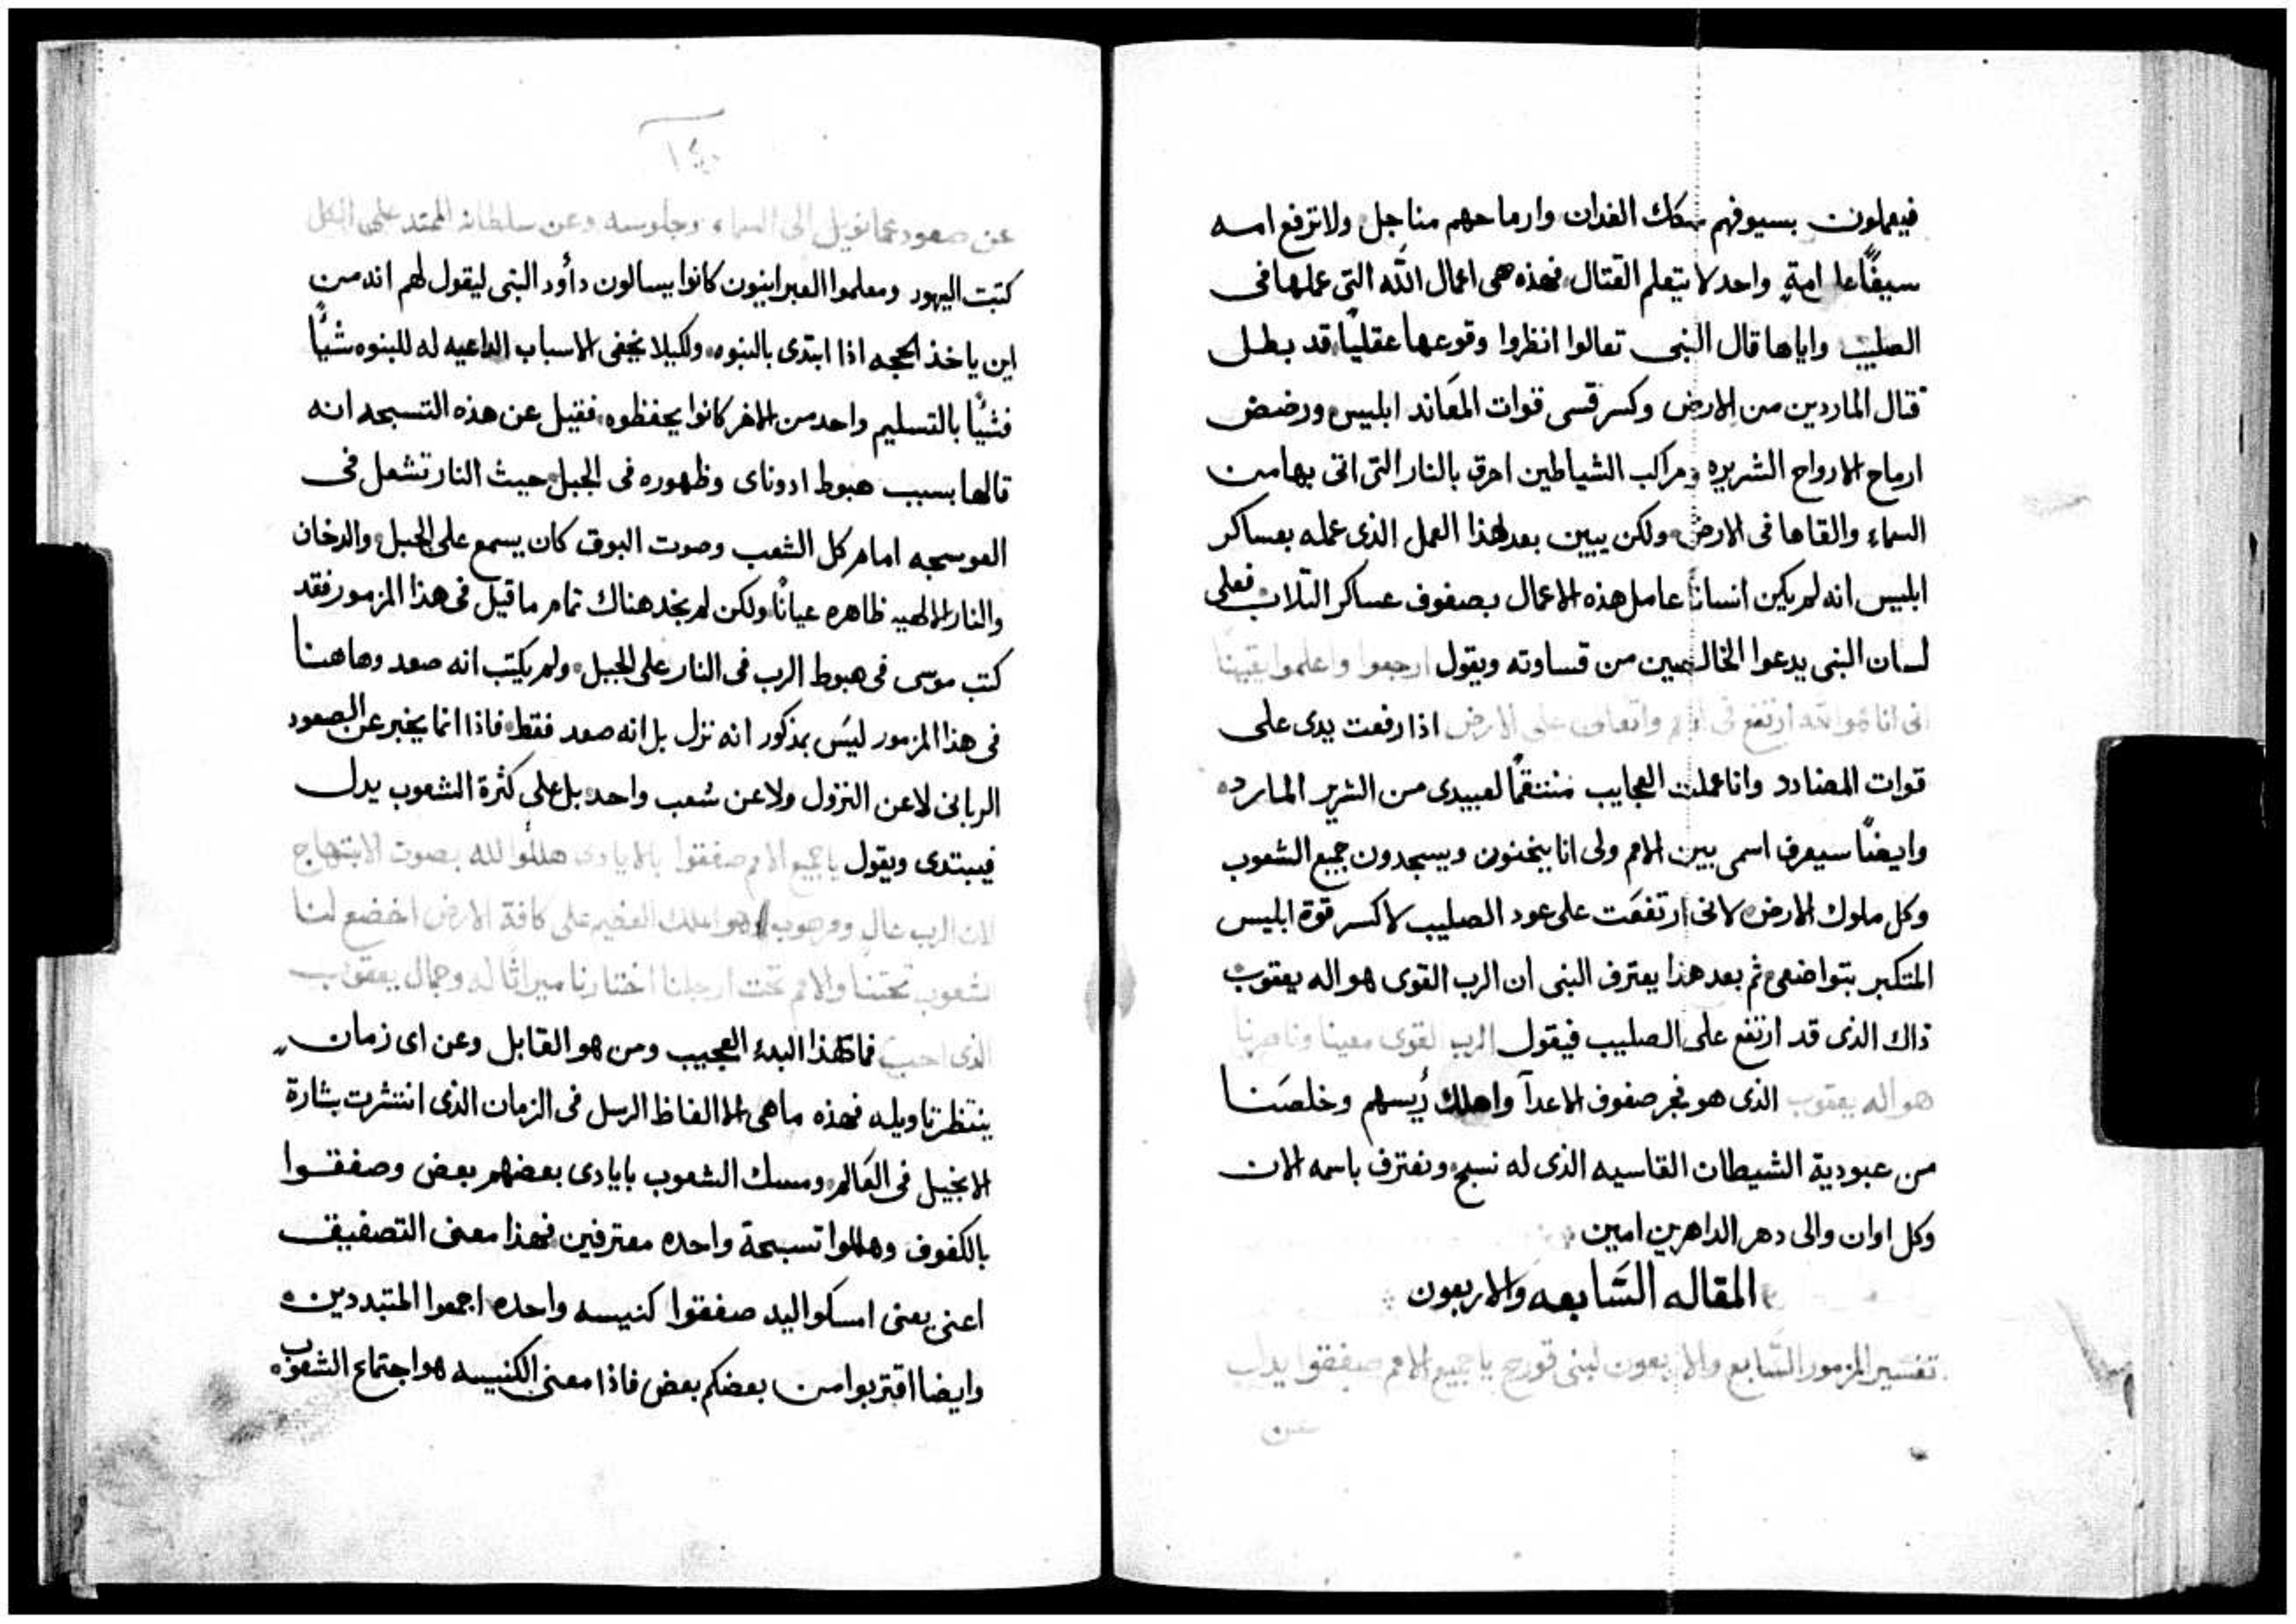 فيعملون بسيوفهم سكك الفدان وارماحهم مناجل ولا ترفع امه
سيفًا علا امةٍ واحد لا يتعلم القتال فهذه هى اعمال الله التى عملها فى
الصليب واياها قال النبى تعالوا انظروا وقوعها عقليًا قد بطل
قتال الماردين من الارض وكسر قسى قوات المعاند ابليس ورضض
ارماح الارواح الشريره ومراكب الشياطين احرق بالنار التى اتى بها من
السماء والقاها فى الارض ولكن يبين بعد لهذا العمل الذى عمله بعساكر
ابليس انه لم يكين انسانًا عامل هذه الاعمال بصفوف عساكر الثلاب فعلى
لسان النبى يدعوا الخالصين من قساوته ويقول ارجعوا واعلموا يقينًا
انى انا هو الله ارتفع فى الامم واتعالى على الارض اذا رفعت يدى على
قوات المضادد وانا عملت العجايب منتقمًا لعبيدى من الشرير المارد
وايضًا سيعرف اسمى بين الامم ولى انا ينحنون ويسجدون جميع الشعوب
وكل ملوك الارض لانى ارتفعت على عود الصليب لاكسر قوة ابليس
المتكبر بتواضعى ثم بعد هذا يعترف النبى ان الرب القوى هو اله يعقوب
ذاك الذى قد ارتفع على الصليب فيقول الرب القوى معينا وناصرنا
هو اله يعقوب الذى هو فجر صفوف الاعدآ واهلك ريسهم وخلصنا
من عبودية الشيطان القاسيه الذى له نسبح ونعترف باسمه الان
وكل اوان والى دهر الداهرين امين
المقاله السَّابعه والاربعون
تفسير المزمور السَّابع والاربعون لبنى قورح يا جميع الامم صفقوا يداب
عن
١٤٥
عن صعود عمانويل الى السماء وجلوسه وعن سلطانه الممتد على الكل
كتبت اليهود ومعلموا العبرانيون كانوا يسالون داؤد النبى ليقول لهم انه من
اين ياخذ الحجه اذا ابتدى بالنبوه ولكيلا يخفى الاسباب الداعيه له للبنوه شيًّا
فشيًّا بالتسليم واحد من الاخر كانوا يحفظوه فقيل عن هذه التسبحه انه
قالها بسبب هبوط ادوناى وظهوره فى الجبل حيث النار تشعل فى
العوسجه امام كل الشعب وصوت البوق كان يسمع على الجبل والدخان
والنار الالهيه ظاهره عيانًا ولكن لم يخد هناك تمام ما قيل فى هذا المزمور فقد
كتب موسى فى هبوط الرب فى النار على الجبل ولم يكتب انه صعد وهاهنا
فى هذا المزمور ليسَ بمذكور انه نزل بل انه صعد فقط فاذا انما يخبر عن الصعود
الربانى لا عن النزول ولا عن شعب واحد بل على كثرة الشعوب يدل
فيبتدى ويقول يا جميع الامم صفقوا بالايادى هللوا لله بصوت الابتهاج
لان الرب عالٍ ومرهوب وهو الملك العظيم على كافة الارض اخضع لنا
شعوب تحتنا والامم تحت ارجلنا اختارنا ميراثًا له وجمال يعقوب
الذى احب فماذا هذا البدء العجيب ومن هو القايل وعن اى زمان
ينتظر تاويله فهذه ما هى الا الفاظ الرسل فى الزمان الذى انتشرت بشارة
الانجيل فى العَالم ومسك الشعوب بايادى بعضهم بعض وصفقوا
بالكفوف وهللوا تسبحة واحده معترفين فهذا معنى التصفيق
اعنى يعنى امسكوا اليد صفقوا كنيسه واحده اجمعوا المتبددين
وايضا اقتربوا من بعضكم بعض فاذا معنى الكنيسه هو اجتماع الشعوب